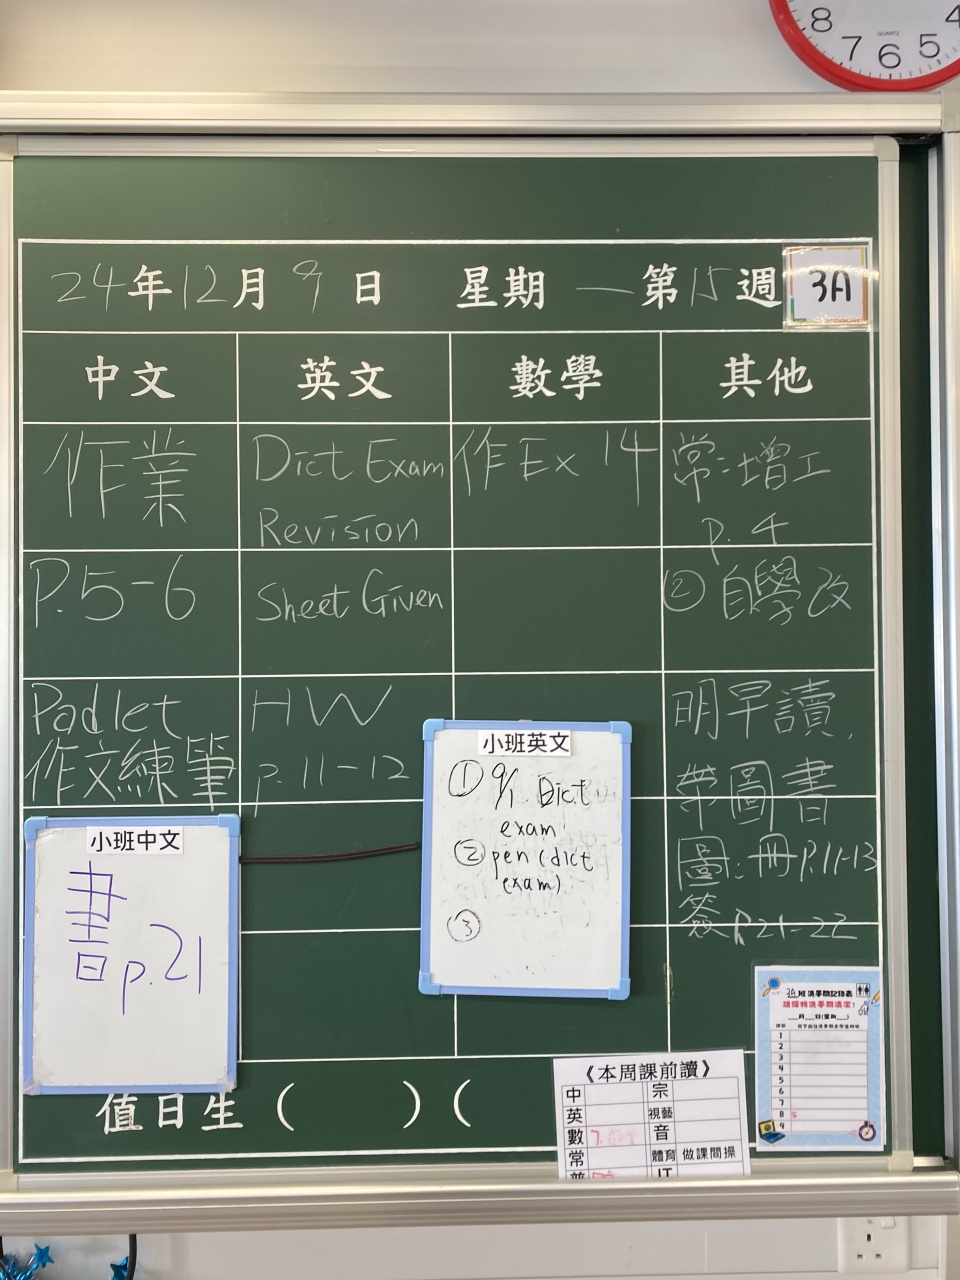 8 7 6 5 4
QUARTZ
24年12月9日 星期一 第15週 3A
中文 英文 數學 其他
作業
P.5-6
Padlet
作文練筆
Dict Exam
Revision
Sheet Given
HW
p.11-12
作Ex 14
常:增工
p.4
② 自學改
明早讀,
帶圖書
圖:冊P.11-13
簽P.21-22
小班中文
書p.21
小班英文
① 9/1 Dict
exam
② pen (dict
exam)
③
值日生 ( ) (
《本周課前讀》
中 宗
英 視藝
數 音
常 體育 做課間操
普 IT
3A班洗手間記錄表
請保持洗手間清潔!
月 日(星期 )
1
2
3
4
5
6
7
8 5
9